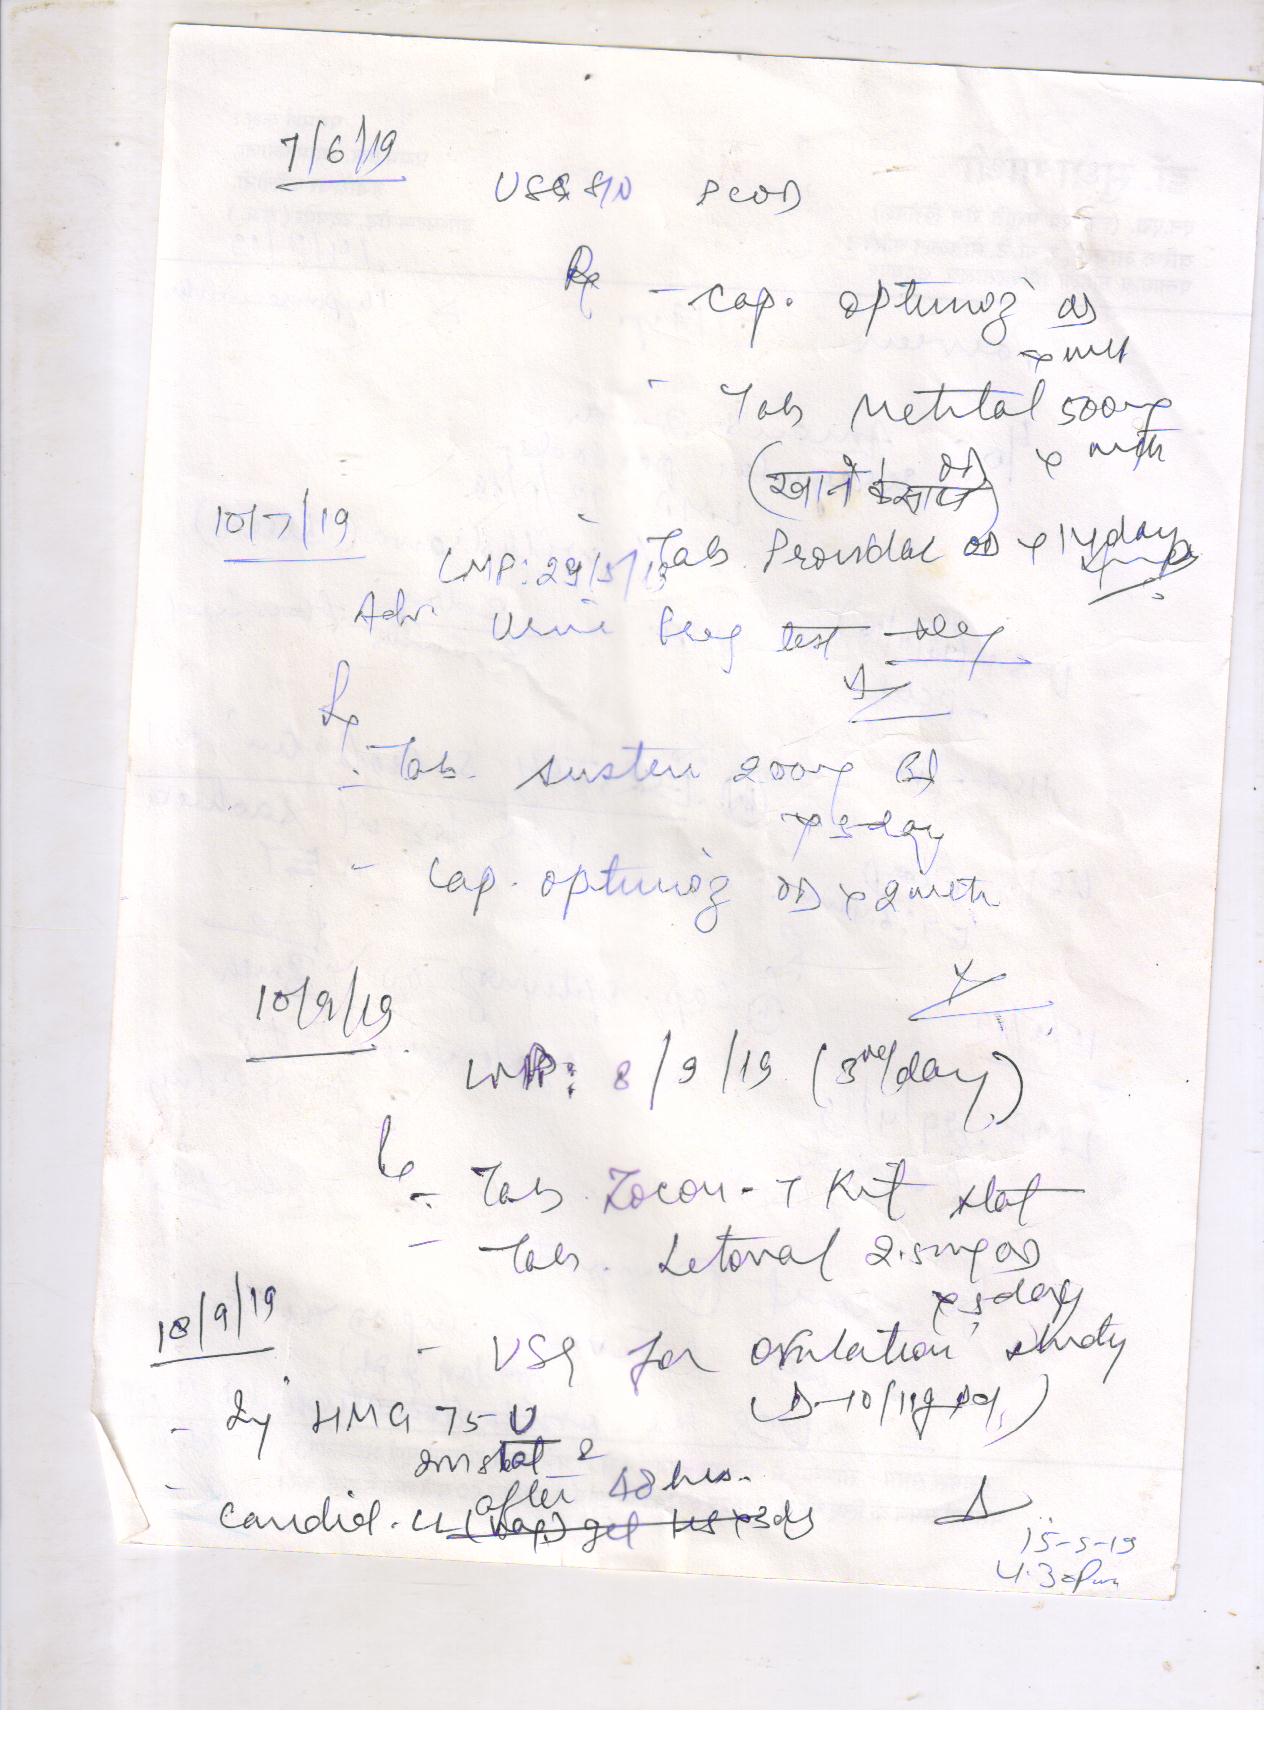 7/6/19
USG S/O PCOD
Rx - Cap. optunoz OD
x mth
- Tab Metital 500mg
OD x mth
(खाने के साथ)
10/7/19
- Tab. Providac OD x 14 days
LMP: 29/5/19
Adv. Urine Preg test
Rx
- Tab. Susten 200mg BD
x 5 day
- Cap. optunoz OD x 2 mth
10/9/19
LMP: 8/9/19 (3rd day)
Rx
- Tab. Zocon-T Kit stat
- Tab. Letoval 2.5mg OD
x 5 day
18/9/19
- USG for ovulation study
(D-10/11
- Inj HMG 75 U
stat &
after 48 hrs.
- Candid-CL (vag) gel HS x 3 ds
15-5-19
4.30pm